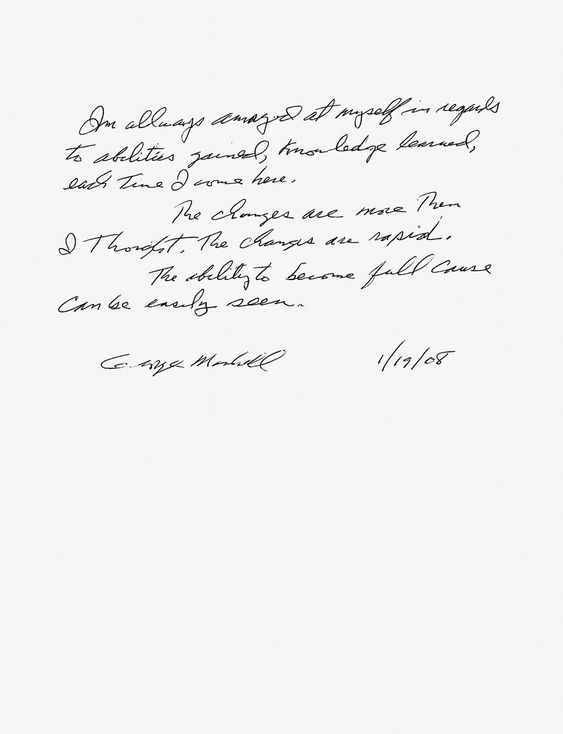 Im allways amazed at myself in regards
to abilities gained, knowledge learned,
each Time I come here.
The changes are more Then
I Thought. The changes are rapid.
The ability to become full Cause
Can be easily seen.
George 1/19/08